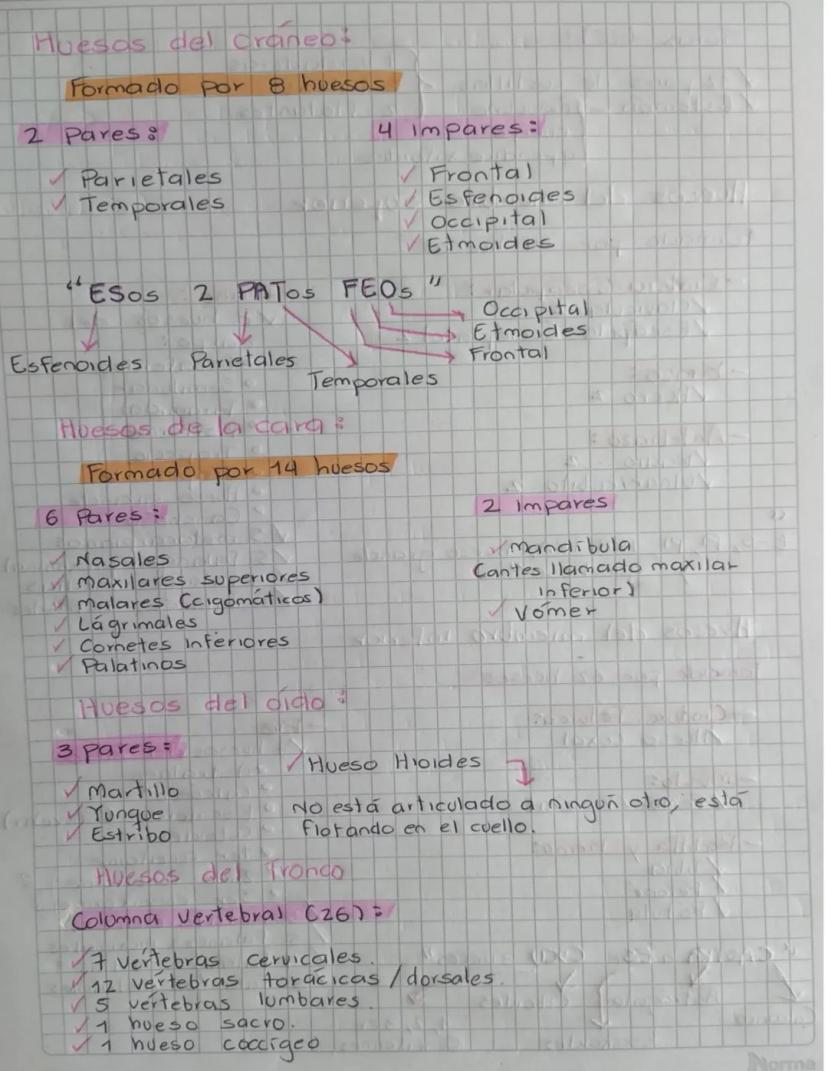 Huesos del cráneo:
Formado por 8 huesos
2 Pares:
✓ Parietales
✓ Temporales
4 Impares:
✓ Frontal
✓ Esfenoides
✓ Occipital
✓ Etmoides
"ESos 2 PATos FEOs"
Occipital
Etmoides
Frontal
Esfenoides Parietales
Temporales
Huesos de la cara:
Formado por 14 huesos
6 Pares:
✓ Nasales
✓ maxilares superiores
✓ malares (cigomáticos)
✓ Lágrimales
✓ Cornetes inferiores
✓ Palatinos
2 Impares
✓ mandíbula
(antes llamado maxilar
inferior)
✓ Vómer
Huesos del oído:
3 pares:
✓ Martillo
✓ Yunque
✓ Estribo
✓ Hueso Hioides
No está articulado a ningún otro, está
flotando en el cuello.
Huesos del Tronco
Columna vertebral (26):
✓ 7 vértebras cervicales.
✓ 12 vértebras torácicas/dorsales.
✓ 5 vértebras lumbares.
✓ 1 hueso sacro.
✓ 1 hueso coccígeo
Norma